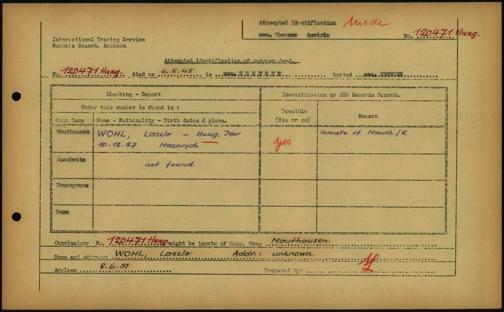 Attempted Identification Made
cem. Ebensee Austria No. 120471 Hung.
International Tracing Service
Records Branch, Arolsen
Attempted identification of unknown dead.
No. 120471 Hung. died on 6.5.45 in cem. EBENSEE buried cem.
Checking - Report
Identifications by ITS Records Branch.
Under this number is found in :
Possible (Yes or no)
Reason
Conc Camp Name - Nationality - Birth dates & place.
Mauthausen WOHL, Laszlo - Hung. Jew yes Inmate of Mauth./K.
10-12-27
Auschwitz not found
Buna
Conclusion: No. 120471 Hung. might be inmate of Conc. Camp Mauthausen
Name and address: WOHL, Laszlo Addr: unknown
Arolsen 8.6.51 Prepared by: